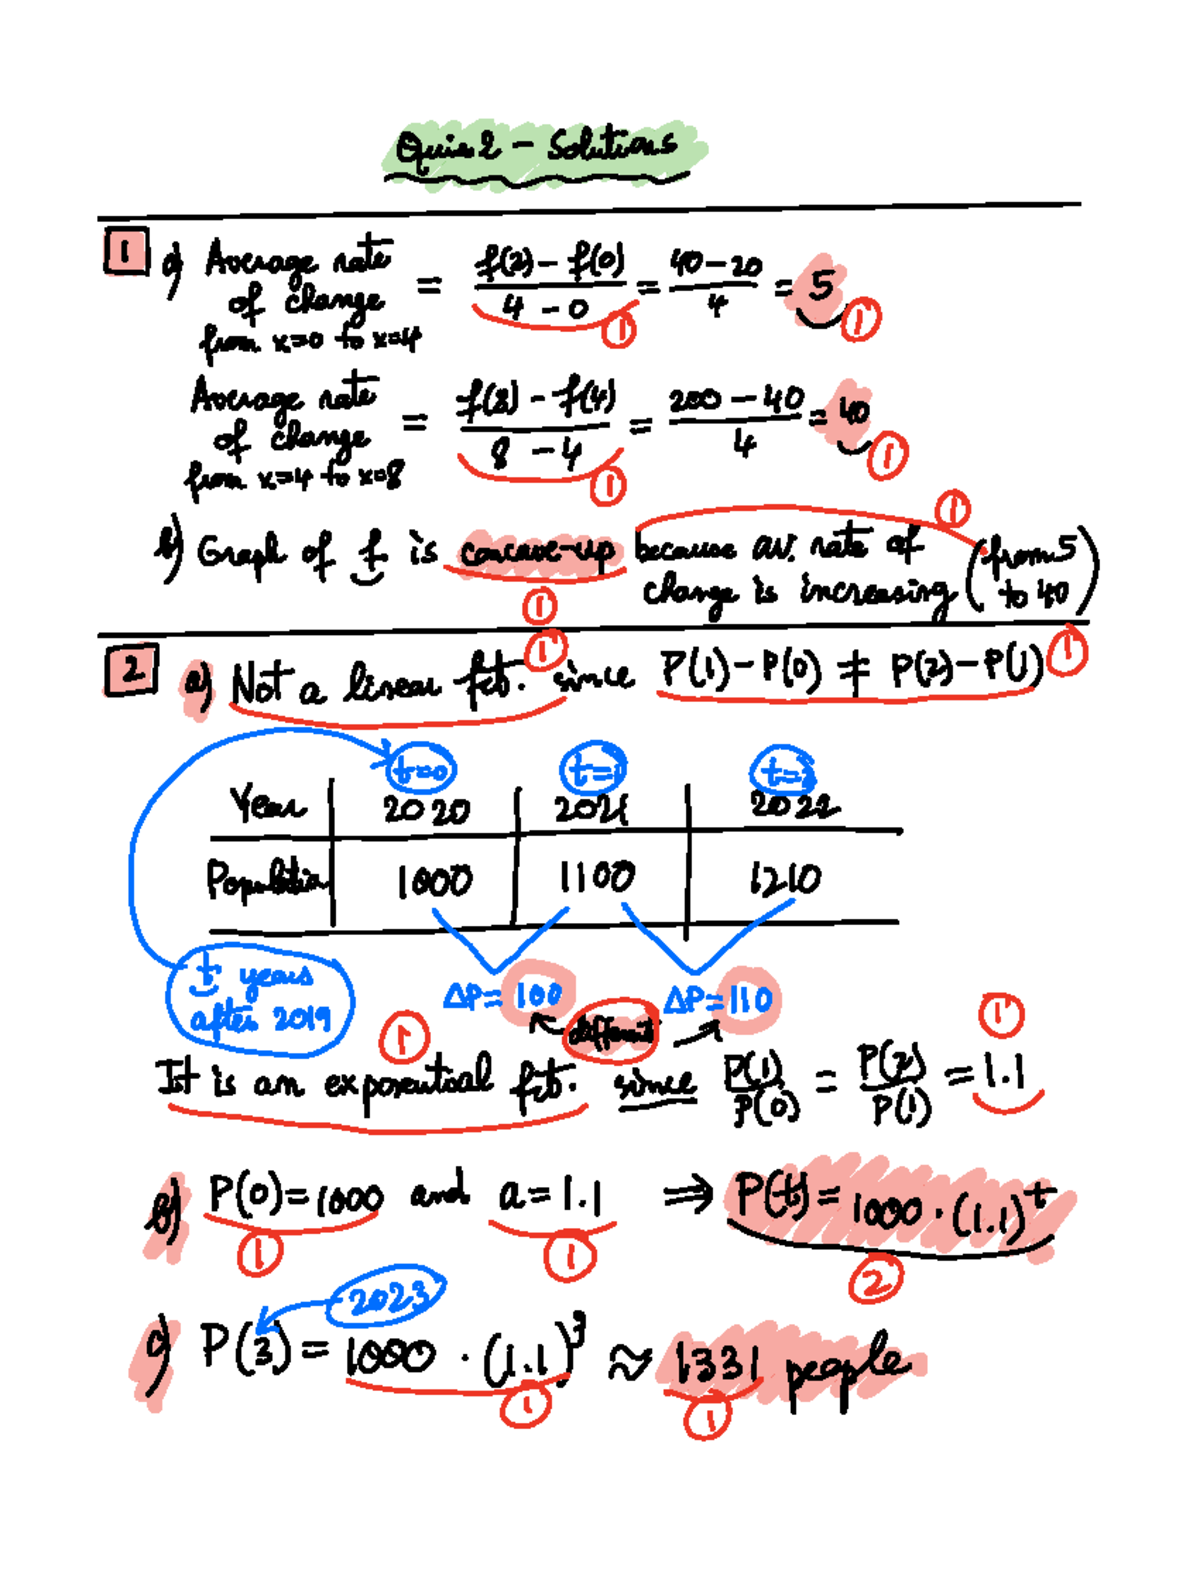 Quiz 2 - Solutions
1 a) Average rate of change from x=0 to x=4 = f(2) - f(0) / 4 - 0 = 40 - 20 / 4 = 5
1 1
Average rate of change from x=4 to x=8 = f(8) - f(4) / 8 - 4 = 200 - 40 / 4 = 40
1 1
b) Graph of f is concave-up because av. rate of
change is increasing (from 5 to 40)
1 1
2 a) Not a linear fct. since P(1) - P(0) ≠ P(2) - P(1)
1 1
t=0 t=1 t=2
Year 2020 2021 2022
Population 1000 1100 1210
t years
after 2019
ΔP= 100 ΔP= 110
different
1 1
It is an exponential fct. since P(1)/P(0) = P(2)/P(1) = 1.1
b) P(0)=1000 and a=1.1 ⇒ P(t)= 1000 · (1.1)^t
1 1 2
2023
c) P(3) = 1000 · (1.1)^3 ≈ 1331 people
1 1